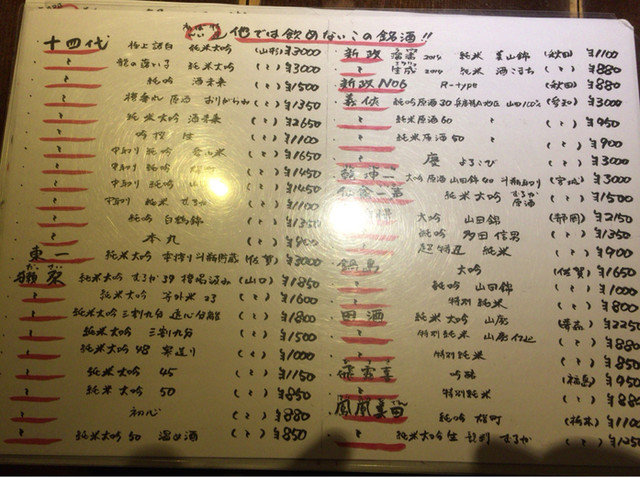 他では飲めないこの銘酒!!
十四代 極上諸白 純米大吟 (山形) ¥3000
〃 龍の落とし子 純米大吟 (〃) ¥3000
〃 純吟 酒未来 ¥1500
〃 原酒 おりがらみ (〃) ¥1350
〃 純米大吟 酒未来 (〃) ¥2650
〃 吟撰 生 (〃) ¥1100
〃 中取り 純吟 (〃) ¥1650
〃 中取り 純吟 (〃) ¥1450
〃 中取り 純吟 (〃) ¥1450
〃 純吟 (〃) ¥1100
〃 純吟 白鶴錦 (〃) ¥1350
〃 本丸 (〃) ¥900
東一 純米大吟 斗瓶貯蔵 (佐賀) ¥3000
純米大吟 むろか 39 槽場汲み (山口) ¥1850
〃 純米大吟 等外米 23 (〃) ¥1600
〃 純米大吟 三割九分 遠心分離 (〃) ¥1800
〃 純米大吟 三割九分 (〃) ¥1500
〃 純米大吟 48 寒造り (〃) ¥1000
〃 純米大吟 45 (〃) ¥1150
〃 純米大吟 50 (〃) ¥850
〃 初心 (〃) ¥880
〃 純米大吟 50 温め酒 (〃) ¥850
新政 2014 純米 美山錦 (秋田) ¥1100
〃 生成 2014 純米 酒こまち (〃) ¥880
新政 No6 R-type (秋田) ¥880
義侠 純吟原酒30 (愛知) ¥3000
〃 純米原酒60 〃 (〃) ¥950
〃 純米原酒50 〃 (〃) ¥900
〃 慶 よろこび (〃) ¥3000
乾坤一 大吟 原酒 山田錦40 斗瓶取り (宮城) ¥3000
純米大吟 むろか 原酒 (〃) ¥1500
大吟 山田錦 (静岡) ¥2150
〃 純吟 多田信男 (〃) ¥1350
〃 超特選 純米 (〃) ¥900
鍋島 大吟 (佐賀) ¥1650
〃 純吟 山田錦 (〃) ¥1000
〃 特別純米 (〃) ¥800
田酒 純米大吟 山廃 (青森) ¥2250
〃 特別純米 山廃仕込 (〃) ¥880
〃 特別純米 (〃) ¥850
飛露喜 吟醸 (福島) ¥950
〃 特別純米 (〃) ¥880
鳳凰美田 純吟 雄町 (栃木) ¥1100
〃 純米大吟 生 むろか (〃) ¥1250